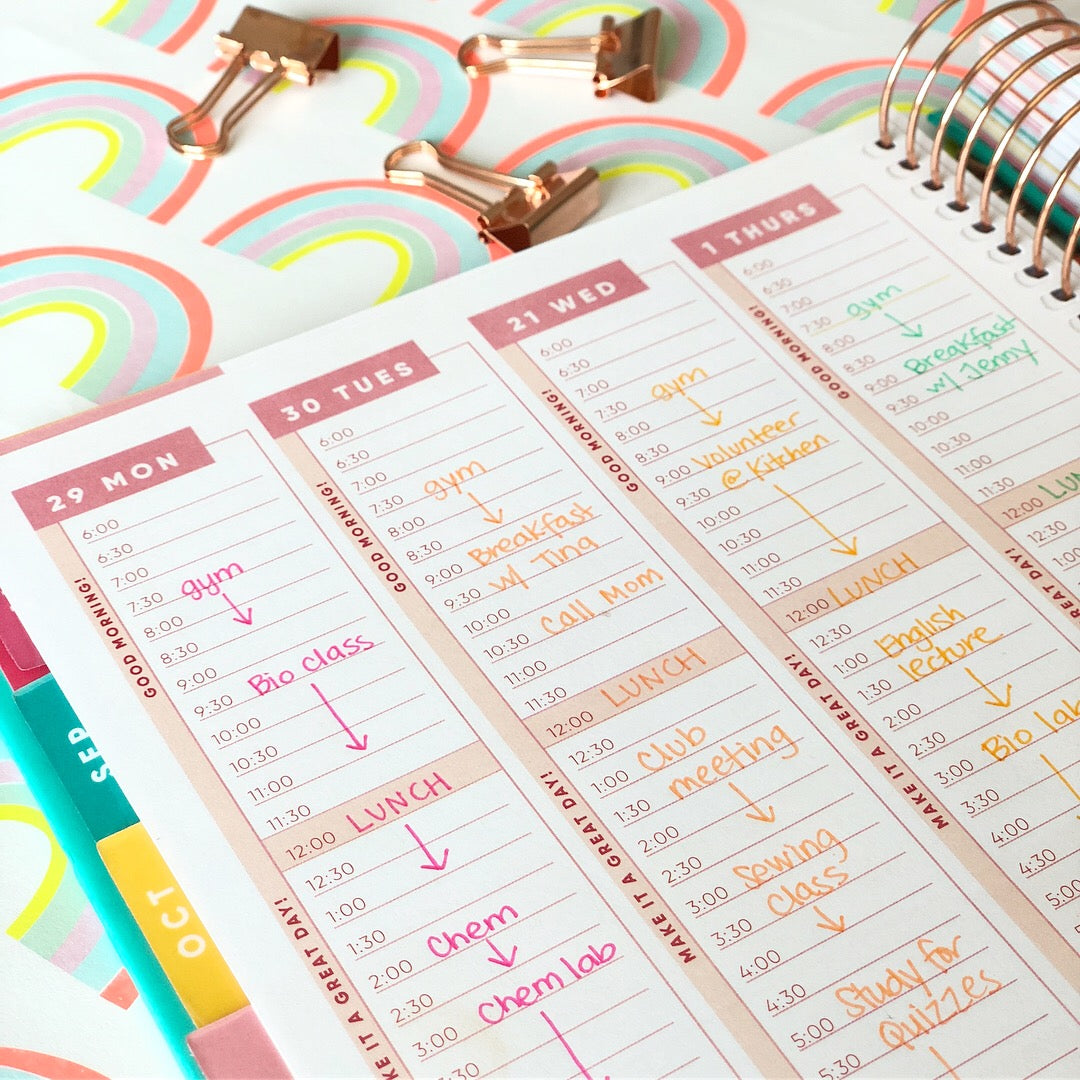 29 MON
GOOD MORNING!
6:00
6:30
7:00
7:30 gym
8:00
8:30
9:00
9:30 Bio class
10:00
10:30
11:00
11:30
12:00 LUNCH
MAKE IT A GREAT DAY!
12:30
1:00
1:30
2:00 chem
2:30
3:00 chem lab
3:30
30 TUES
GOOD MORNING!
6:00
6:30
7:00
7:30 gym
8:00
8:30
9:00 Breakfast
9:30 w/ Tina
10:00
10:30 call Mom
11:00
11:30
12:00 LUNCH
MAKE IT A GREAT DAY!
12:30
1:00 Club
1:30 meeting
2:00
2:30
3:00 Sewing
3:30 class
4:00
4:30
5:00 Study for
5:30 quizzes
21 WED
GOOD MORNING!
6:00
6:30
7:00
7:30 gym
8:00
8:30
9:00 volunteer
9:30 @ Kitchen
10:00
10:30
11:00
11:30
12:00 LUNCH
MAKE IT A GREAT DAY!
12:30
1:00 English
1:30 lecture
2:00
2:30
3:00 Bio lab
3:30
4:00
4:30
5:00
1 THURS
GOOD MORNING!
6:00
6:30
7:00
7:30 gym
8:00
8:30
9:00 Breakfast
9:30 w/ Jenny
10:00
10:30
11:00
11:30
12:00 LUN
GREAT DAY!
12:30
1:00
SEP
OCT